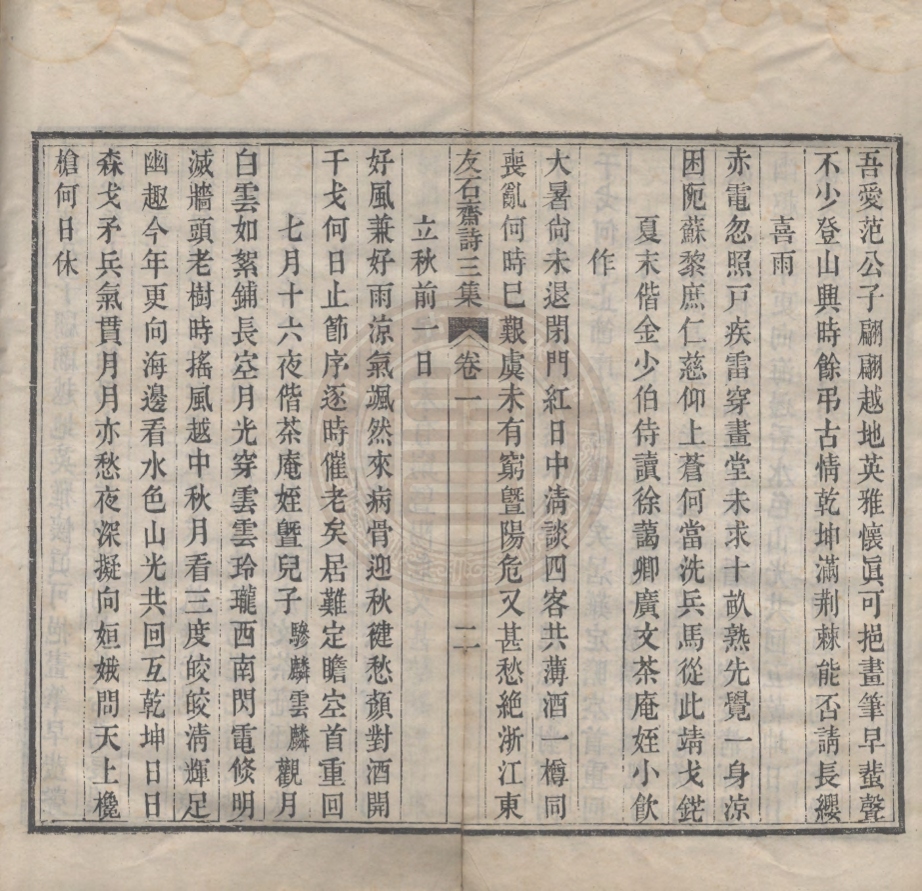 吾愛范公子翩翩越地英雅懷眞可挹畫筆早蜚聲
不少登山興時餘弔古情乾坤滿荆棘能否請長纓
喜雨
赤電忽照戸疾雷穿畫堂未求十畝熟先覺一身涼
困阨蘇黎庶仁慈仰上蒼何當洗兵馬從此靖戈鋩
夏末偕金少伯侍讀徐藹卿廣文茶庵姪小飲
作
大暑尙未退閉門紅日中淸談四客共薄酒一樽同
喪亂何時已艱虞未有窮曁陽危又甚愁絶浙江東
友石齋詩三集 卷一 二
立秋前一日
好風兼好雨涼氣颯然來病骨迎秋健愁顏對酒開
干戈何日止節序逐時催老矣居難定瞻空首重回
七月十六夜偕茶庵姪曁兒子驂麟雲麟觀月
白雲如絮鋪長空月光穿雲雲玲瓏西南閃電倐明
滅牆頭老樹時搖風越中秋月看三度皎皎淸輝足
幽趣今年更向海邊看水色山光共回互乾坤日日
森戈矛兵氣貫月月亦愁夜深擬向姮娥問天上欃
槍何日休